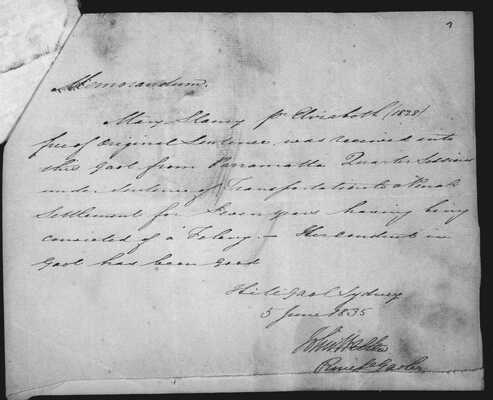 Memorandum.
Mary Slaney pr Elizabeth (1828)
free of Original Sentence was received into
this Gaol from Parramatta Quarter Sessions
under Sentence of Transportation to a Penal
Settlement for Seven years having being
convicted of a Felony. – Her conduct in
Gaol has been Good
H M Gaol Sydney
5 June 1835
Gaoler